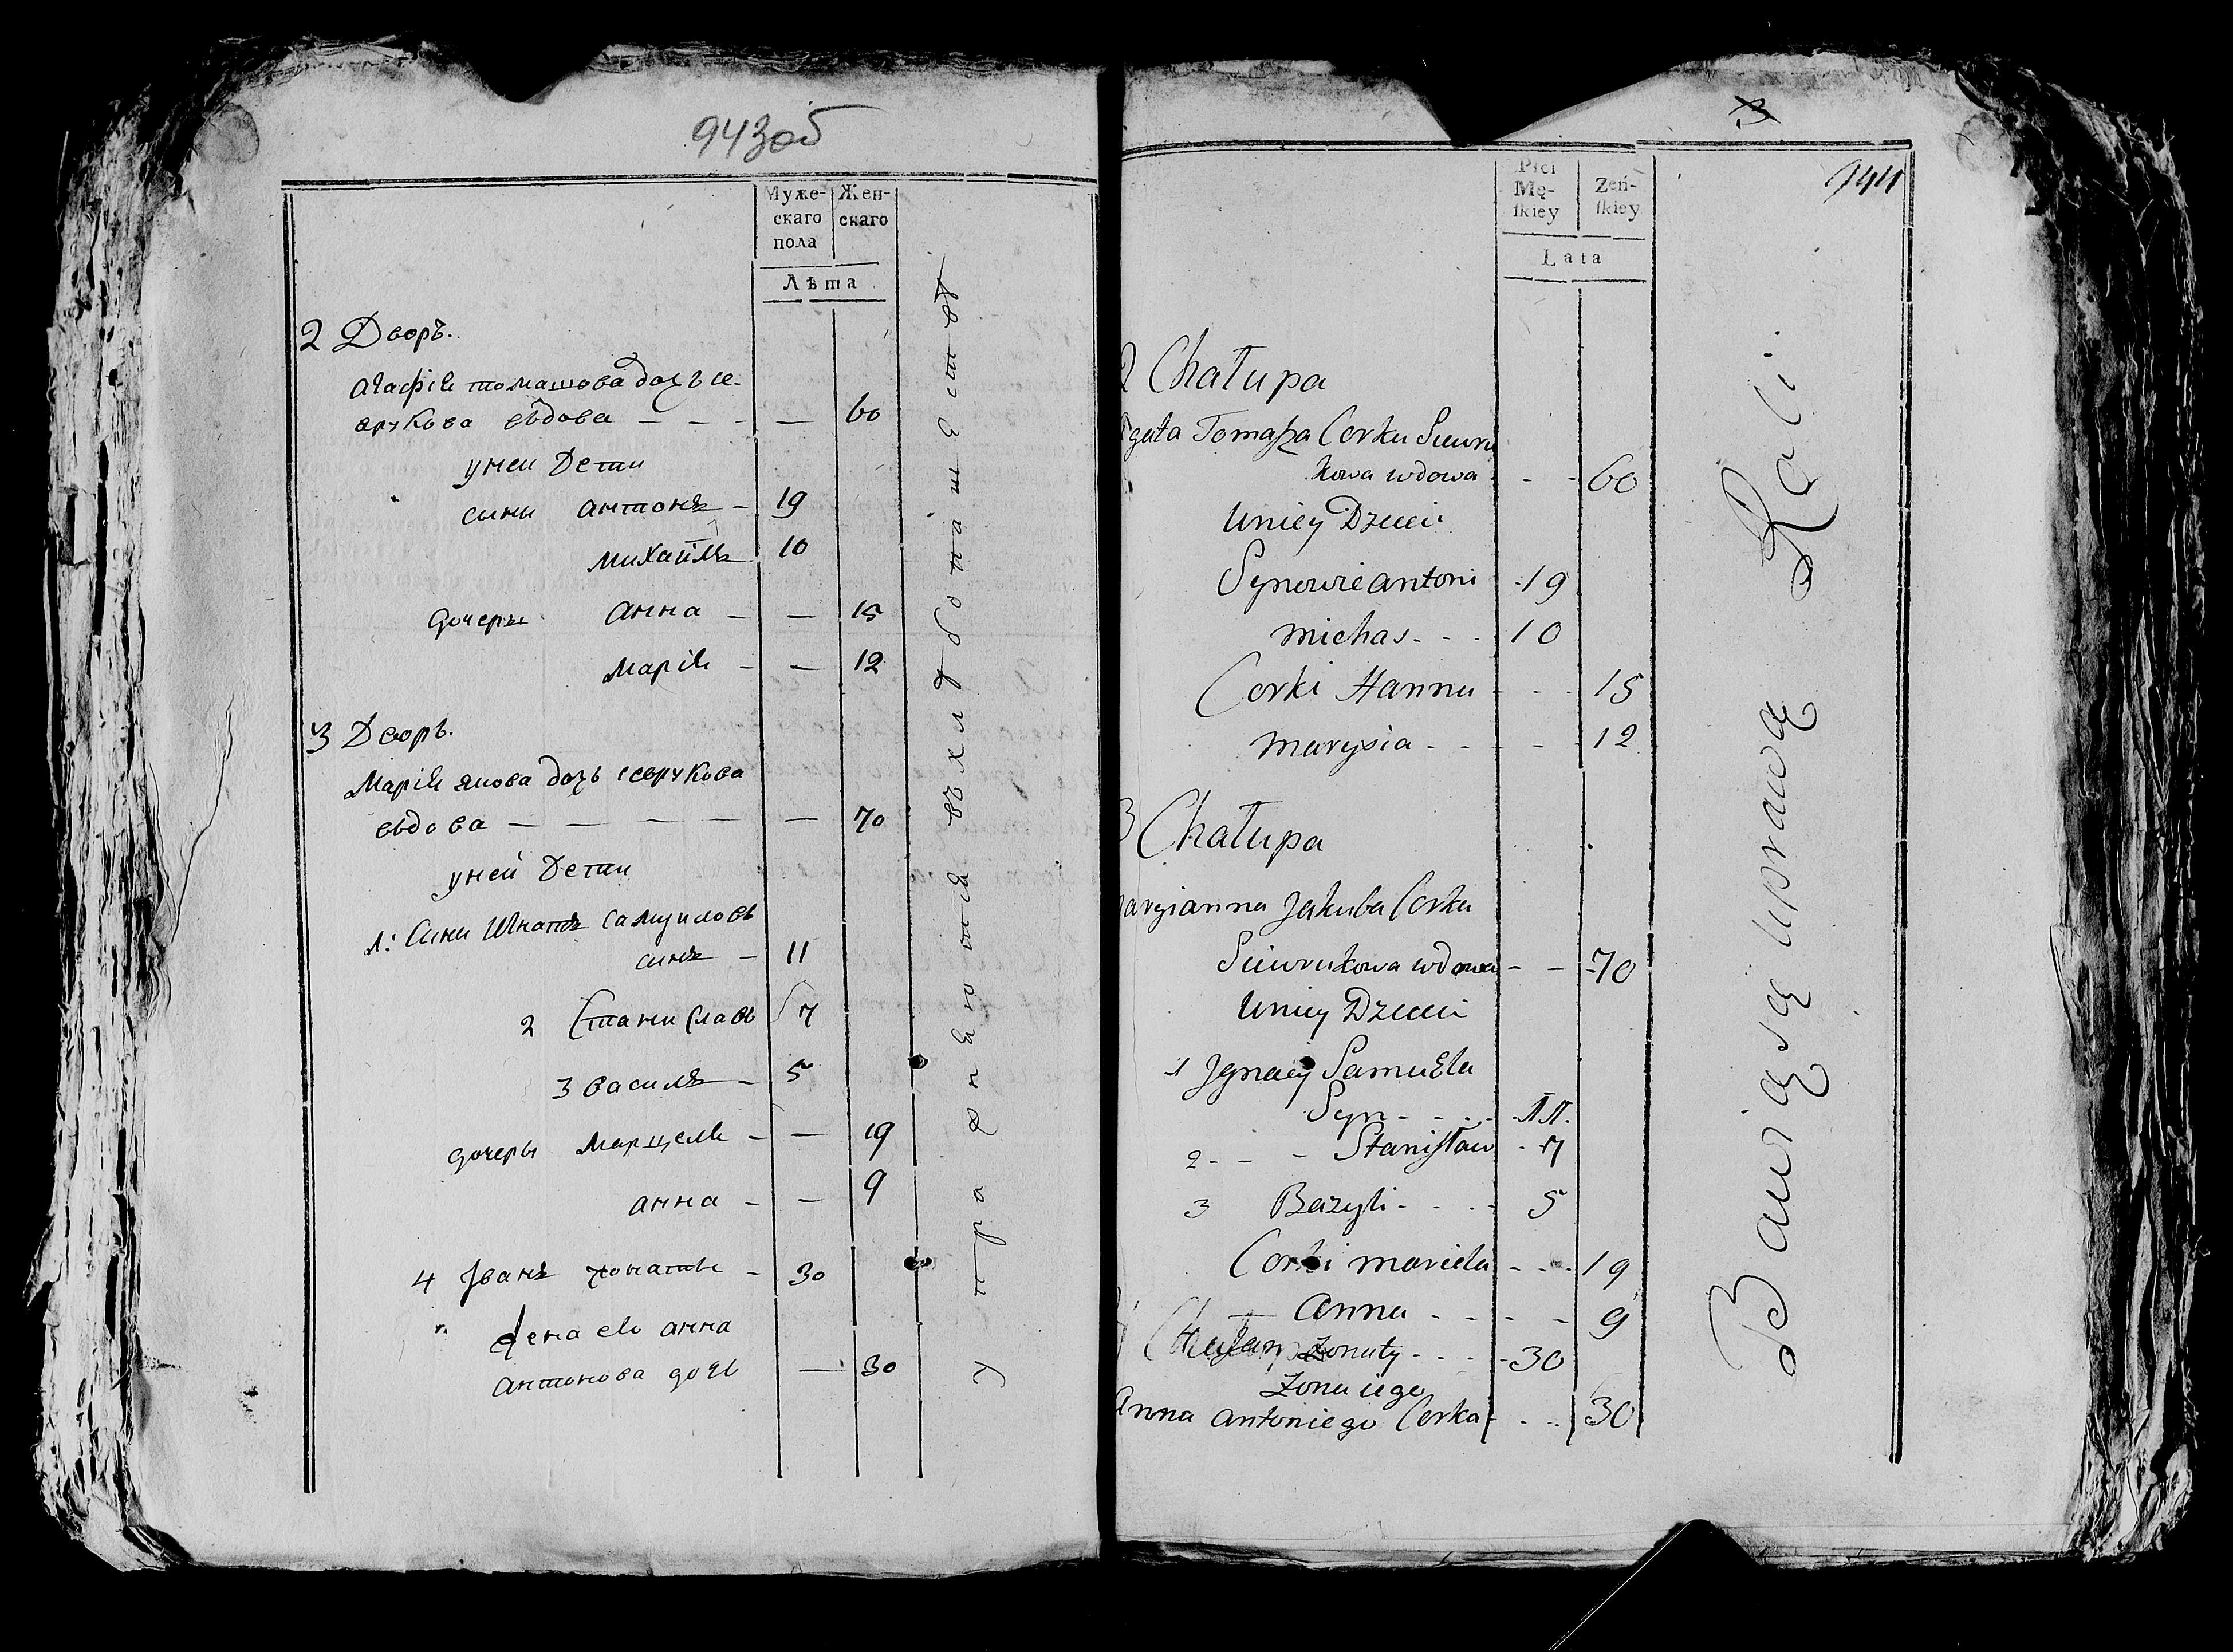 943об
Муже-
скаго
пола
Жен-
скаго
Лѣта
2 Дворъ.
агафія томашова дочь се-
врукова вдова — — — — 60
у неи Дети
сыны антонъ — 19
михайлъ 10
дочеры анна — — 15
марія — — 12
3 Дворъ.
Марія янова дочь севрукова
вдова — — — — — 70
у ней Дети
1: Сини Игнатъ самуиловъ
синъ — 11
2 Станиславъ 7
3 василъ — 5
дочеры марцеля — — 19
анна — — 9
4 Іванъ — 30
жена его анна
антонова дочь — 30
упражнеются въ хлѣбопашествѣ
3
944
Płci
Mę-
ſkiey
Zeń-
ſkiey
Lata
2 Chałupa
Agata Tomaſza Corka Siewru
kowa wdowa - - - 60
Uniey Dzieci
Synowie antoni - 19
michas - - - 10
Corki Hanna - - - 15
marysia - - - - 12
3 Chałupa
Maryianna Jakuba Corka
Siewrukowa wdowa - - - 70
Uniey Dzieci
1 Jgnacy Samuela
Syn - - - - 11.
2 - - - Staniſław - 7
3 Bazyli - - - - 5
Corki marcela - - - 19
— anna - - - - - 9
Jan - - - - 30
Zona iego
Anna antoniego Corka - . .. 30
Bawią się uprawą Roli